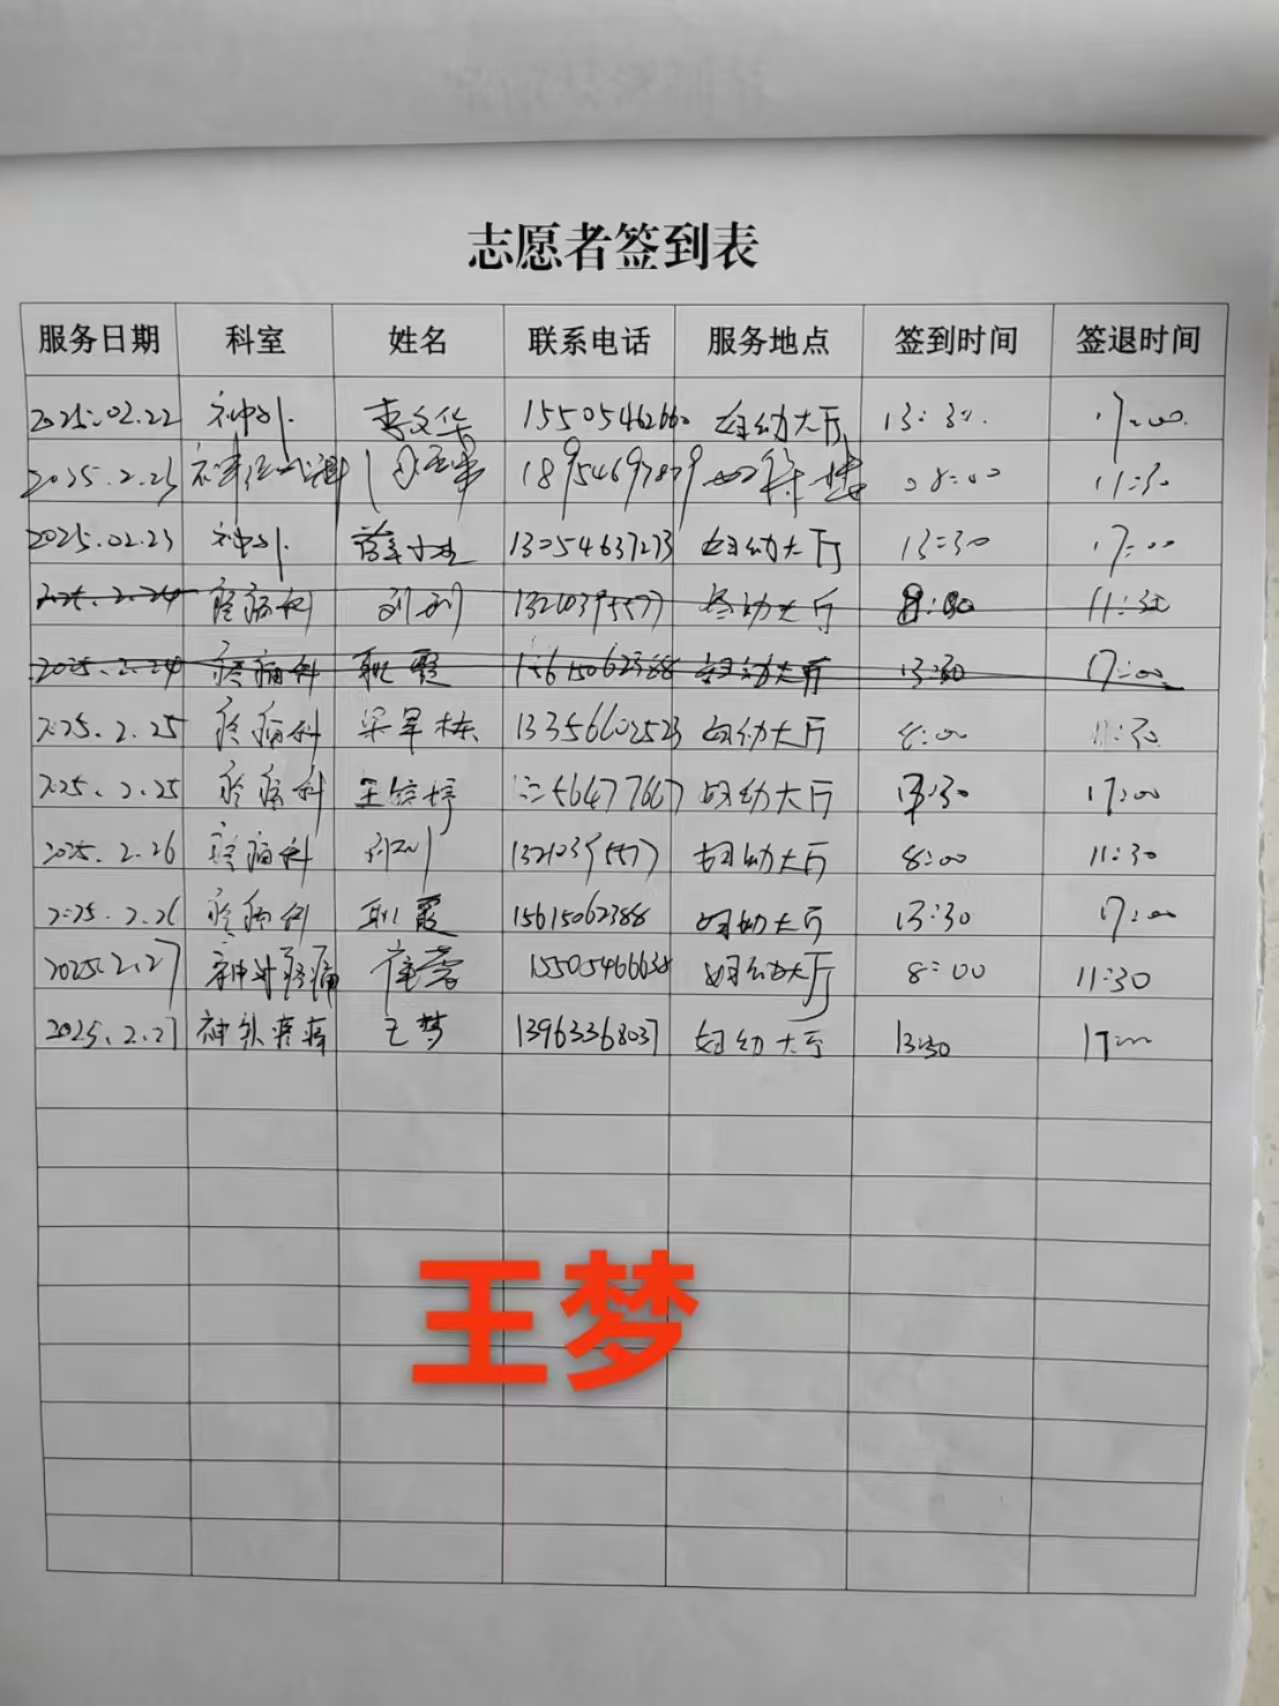 志愿者签到表
服务日期 科室 姓名 联系电话 服务地点 签到时间 签退时间
2025.02.22 神外 李文华 15505462660 妇幼大厅 13:30 17:00
2025.2.23 08:00 11:30
2025.02.23 神外 13054637273 妇幼大厅 13:30 17:00
2025.2.24 疼痛科 妇幼大厅 8:00 11:30
2025.2.24 疼痛科 耿霞 15615062388 妇幼大厅 13:30 17:00
2025.2.25 疼痛科 13356602523 妇幼大厅 8:00 11:30
2025.2.25 疼痛科 妇幼大厅 13:30 17:00
2025.2.26 疼痛科 妇幼大厅 8:00 11:30
2025.2.26 疼痛科 耿霞 15615062388 妇幼大厅 13:30 17:00
2025.2.27 神外疼痛 15505466638 妇幼大厅 8:00 11:30
2025.2.27 王梦 13963368037 妇幼大厅 13:30 17:00
王梦